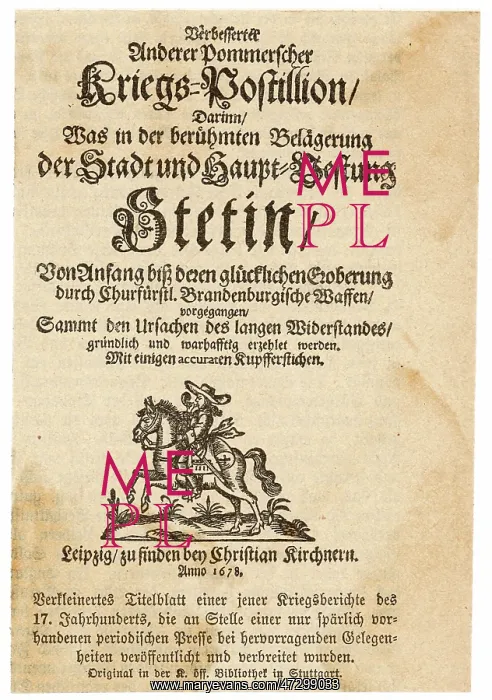 Verbesserter
Anderer Pommerscher
Kriegs-Postillion/
Darinn/
Was in der berühmten Belägerung
der Stadt und Haupt-Vestung
Stetin/
Von Anfang biß deren glücklichen Eroberung
durch Churfürstl. Brandenburgische Waffen/
vorgegangen/
Sammt den Ursachen des langen Widerstandes/
gründlich und warhafftig erzehlet werden.
Mit einigen accuraten Kupfferstichen.
ME
PL
ME
PL
Leipzig/ zu finden bey Christian Kirchnern.
Anno 1678.
Verkleinertes Titelblatt einer jener Kriegsberichte des
17. Jahrhunderts, die an Stelle einer nur spärlich vor-
handenen periodischen Presse bei hervorragenden Gelegen-
heiten veröffentlicht und verbreitet wurden.
Original in der K. öff. Bibliothek in Stuttgart.
www.maryevans.com/47299039